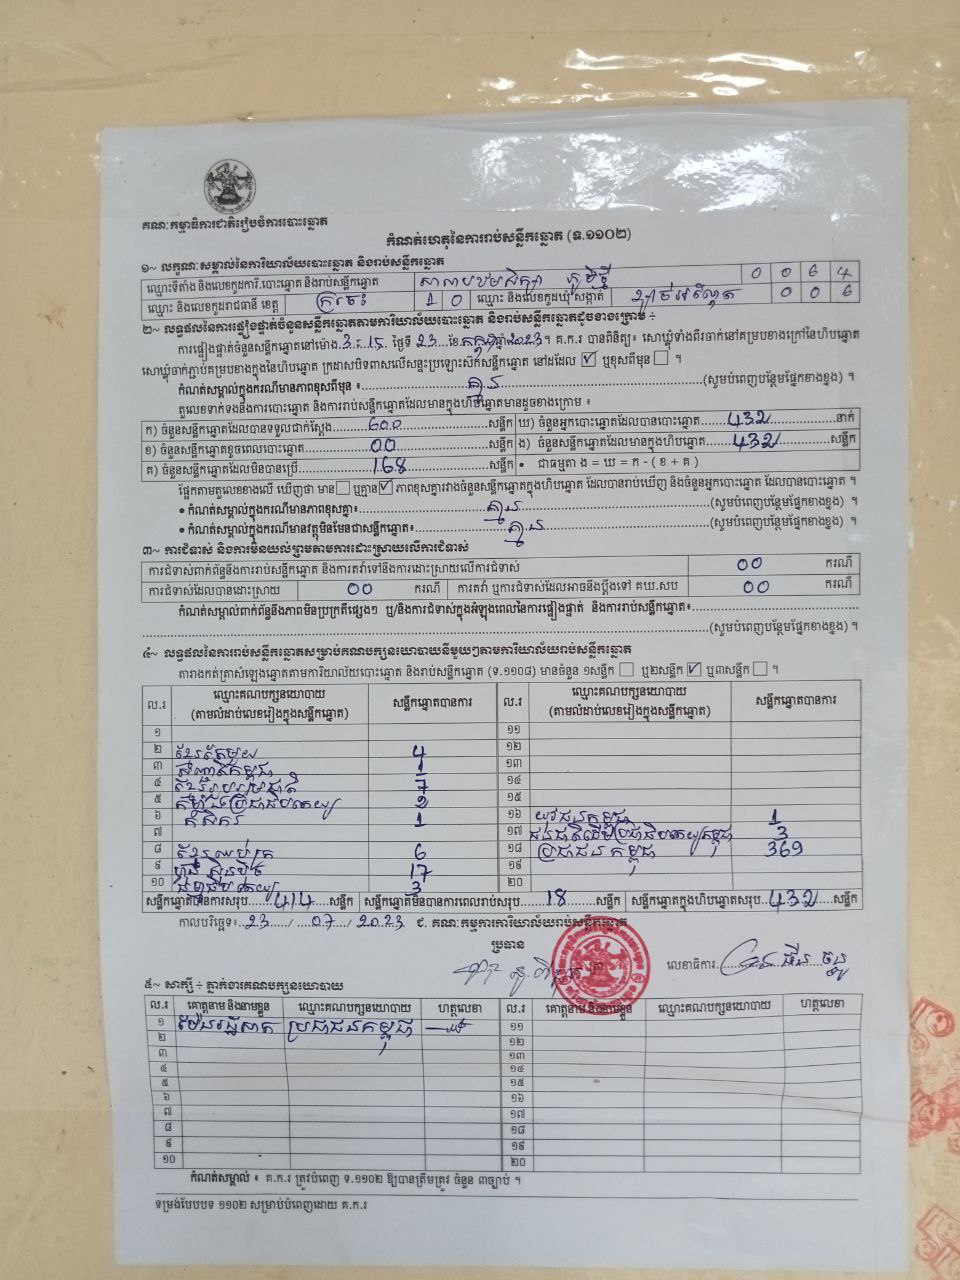 គណៈកម្មាធិការជាតិរៀបចំការបោះឆ្នោត
កំណត់ហេតុនៃការរាប់សន្លឹកឆ្នោត (ទ.១១០២)
១~ លក្ខណៈសម្គាល់នៃការិយាល័យបោះឆ្នោត និងរាប់សន្លឹកឆ្នោត
ឈ្មោះទីតាំង និងលេខកូដការិ.បោះឆ្នោត និងរាប់សន្លឹកឆ្នោត សាលាបឋមសិក្សា 0 0 6 4
ឈ្មោះ និងលេខកូដរាជធានី ខេត្ត ក្រចេះ 1 0 ឈ្មោះ និងលេខកូដឃុំ សង្កាត់ 0 0 6
២~ លទ្ធផលនៃការផ្ទៀងផ្ទាត់ចំនួនសន្លឹកឆ្នោតតាមការិយាល័យបោះឆ្នោត និងរាប់សន្លឹកឆ្នោតដូចខាងក្រោម ÷
ការផ្ទៀងផ្ទាត់ចំនួនសន្លឹកឆ្នោតនៅម៉ោង 3:15 ថ្ងៃទី 23 ខែ កក្កដា ឆ្នាំ 2023 ។ គ.ក.រ បានពិនិត្យ៖ សោឃ្លុំទាំងពីរចាក់នៅគម្របខាងក្រៅនៃហិបឆ្នោត
សោឃ្លុំចាក់ភ្ជាប់គម្របខាងក្នុងនៃហិបឆ្នោត ក្រដាសបិទពាសលើសន្ទះប្រឡោះស៊កសន្លឹកឆ្នោត នៅដដែល ☑ ឬខុសពីមុន ☐ ។
កំណត់សម្គាល់ក្នុងករណីមានភាពខុសពីមុន ៖ គ្មាន (សូមបំពេញបន្ថែមផ្នែកខាងខ្នង) ។
តួលេខទាក់ទងនឹងការបោះឆ្នោត និងការរាប់សន្លឹកឆ្នោតដែលមានក្នុងហិបឆ្នោតមានដូចខាងក្រោម ៖
ក) ចំនួនសន្លឹកឆ្នោតដែលបានទទួលជាក់ស្ដែង 600 សន្លឹក ឃ) ចំនួនអ្នកបោះឆ្នោតដែលបានបោះឆ្នោត 432 នាក់
ខ) ចំនួនសន្លឹកឆ្នោតខូចពេលបោះឆ្នោត 00 សន្លឹក ង) ចំនួនសន្លឹកឆ្នោតដែលមានក្នុងហិបឆ្នោត 432 សន្លឹក
គ) ចំនួនសន្លឹកឆ្នោតដែលមិនបានប្រើ 168 សន្លឹក • ជាធម្មតា ង = ឃ = ក - ( ខ + គ )
ផ្អែកតាមតួលេខខាងលើ ឃើញថា មាន ☐ ឬគ្មាន ☑ ភាពខុសគ្នារវាងចំនួនសន្លឹកឆ្នោតក្នុងហិបឆ្នោត ដែលបានរាប់ឃើញ និងចំនួនអ្នកបោះឆ្នោត ដែលបានបោះឆ្នោត ។
• កំណត់សម្គាល់ក្នុងករណីមានភាពខុសគ្នា៖ គ្មាន (សូមបំពេញបន្ថែមផ្នែកខាងខ្នង) ។
• កំណត់សម្គាល់ក្នុងករណីមានវត្ថុមិនមែនជាសន្លឹកឆ្នោត៖ គ្មាន (សូមបំពេញបន្ថែមផ្នែកខាងខ្នង) ។
៣~ ការជំទាស់ និងការមិនយល់ព្រមតាមការដោះស្រាយលើការជំទាស់
ការជំទាស់ពាក់ព័ន្ធនឹងការរាប់សន្លឹកឆ្នោត និងការតវ៉ាទៅនឹងការដោះស្រាយលើការជំទាស់ 00 ករណី
ការជំទាស់ដែលបានដោះស្រាយ 00 ករណី ការតវ៉ា ឬការជំទាស់ដែលអាចនឹងប្ដឹងទៅ គឃ.សប 00 ករណី
កំណត់សម្គាល់ពាក់ព័ន្ធនឹងភាពមិនប្រក្រតីផ្សេងៗ ឬ/និងការជំទាស់ក្នុងអំឡុងពេលនៃការផ្ទៀងផ្ទាត់ និងការរាប់សន្លឹកឆ្នោត៖
(សូមបំពេញបន្ថែមផ្នែកខាងខ្នង) ។
៤~ លទ្ធផលនៃការរាប់សន្លឹកឆ្នោតសម្រាប់គណបក្សនយោបាយនីមួយៗតាមការិយាល័យរាប់សន្លឹកឆ្នោត
តារាងកត់ត្រាសំឡេងឆ្នោតតាមការិយាល័យបោះឆ្នោត និងរាប់សន្លឹកឆ្នោត (ទ.១១០៨) មានចំនួន ១សន្លឹក ☐ ឬ២សន្លឹក ☑ ឬ៣សន្លឹក ☐ ។
ល.រ ឈ្មោះគណបក្សនយោបាយ (តាមលំដាប់លេខរៀងក្នុងសន្លឹកឆ្នោត) សន្លឹកឆ្នោតបានការ ល.រ ឈ្មោះគណបក្សនយោបាយ (តាមលំដាប់លេខរៀងក្នុងសន្លឹកឆ្នោត) សន្លឹកឆ្នោតបានការ
១ ១១
២ ខ្មែរតែមួយ 4 ១២
៣ សញ្ជាតិកម្ពុជា 1 ១៣
៤ ខ្មែររួបរួមជាតិ 7 ១៤
៥ កម្លាំងប្រជាធិបតេយ្យ 2 ១៥
៦ កសិករ 1 ១៦ យុវជនកម្ពុជា 1
៧ ១៧ ជនជាតិដើមប្រជាធិបតេយ្យកម្ពុជា 3
៨ ខ្មែរឈប់ក្រ 6 ១៨ ប្រជាជនកម្ពុជា 369
៩ ហ៊្វុនស៊ិនប៉ិច 17 ១៩
១០ ធម្មាធិបតេយ្យ 3 ២០
សន្លឹកឆ្នោតបានការសរុប 414 សន្លឹក សន្លឹកឆ្នោតមិនបានការពេលរាប់សរុប 18 សន្លឹក សន្លឹកឆ្នោតក្នុងហិបឆ្នោតសរុប 432 សន្លឹក
កាលបរិច្ឆេទ៖ 23 / 07 / 2023 ៩. គណៈកម្មការការិយាល័យរាប់សន្លឹកឆ្នោត
ប្រធាន
លេខាធិការ
៥~ សាក្សី ÷ ភ្នាក់ងារគណបក្សនយោបាយ
ល.រ គោត្តនាម និងនាមខ្លួន ឈ្មោះគណបក្សនយោបាយ ហត្ថលេខា ល.រ គោត្តនាម និងនាមខ្លួន ឈ្មោះគណបក្សនយោបាយ ហត្ថលេខា
១ ប្រជាជនកម្ពុជា ១១
២ ១២
៣ ១៣
៤ ១៤
៥ ១៥
៦ ១៦
៧ ១៧
៨ ១៨
៩ ១៩
១០ ២០
កំណត់សម្គាល់ ៖ គ.ក.រ ត្រូវបំពេញ ទ.១១០២ ឱ្យបានត្រឹមត្រូវ ចំនួន ៣ច្បាប់ ។
ទម្រង់បែបបទ ១១០២ សម្រាប់បំពេញដោយ គ.ក.រ